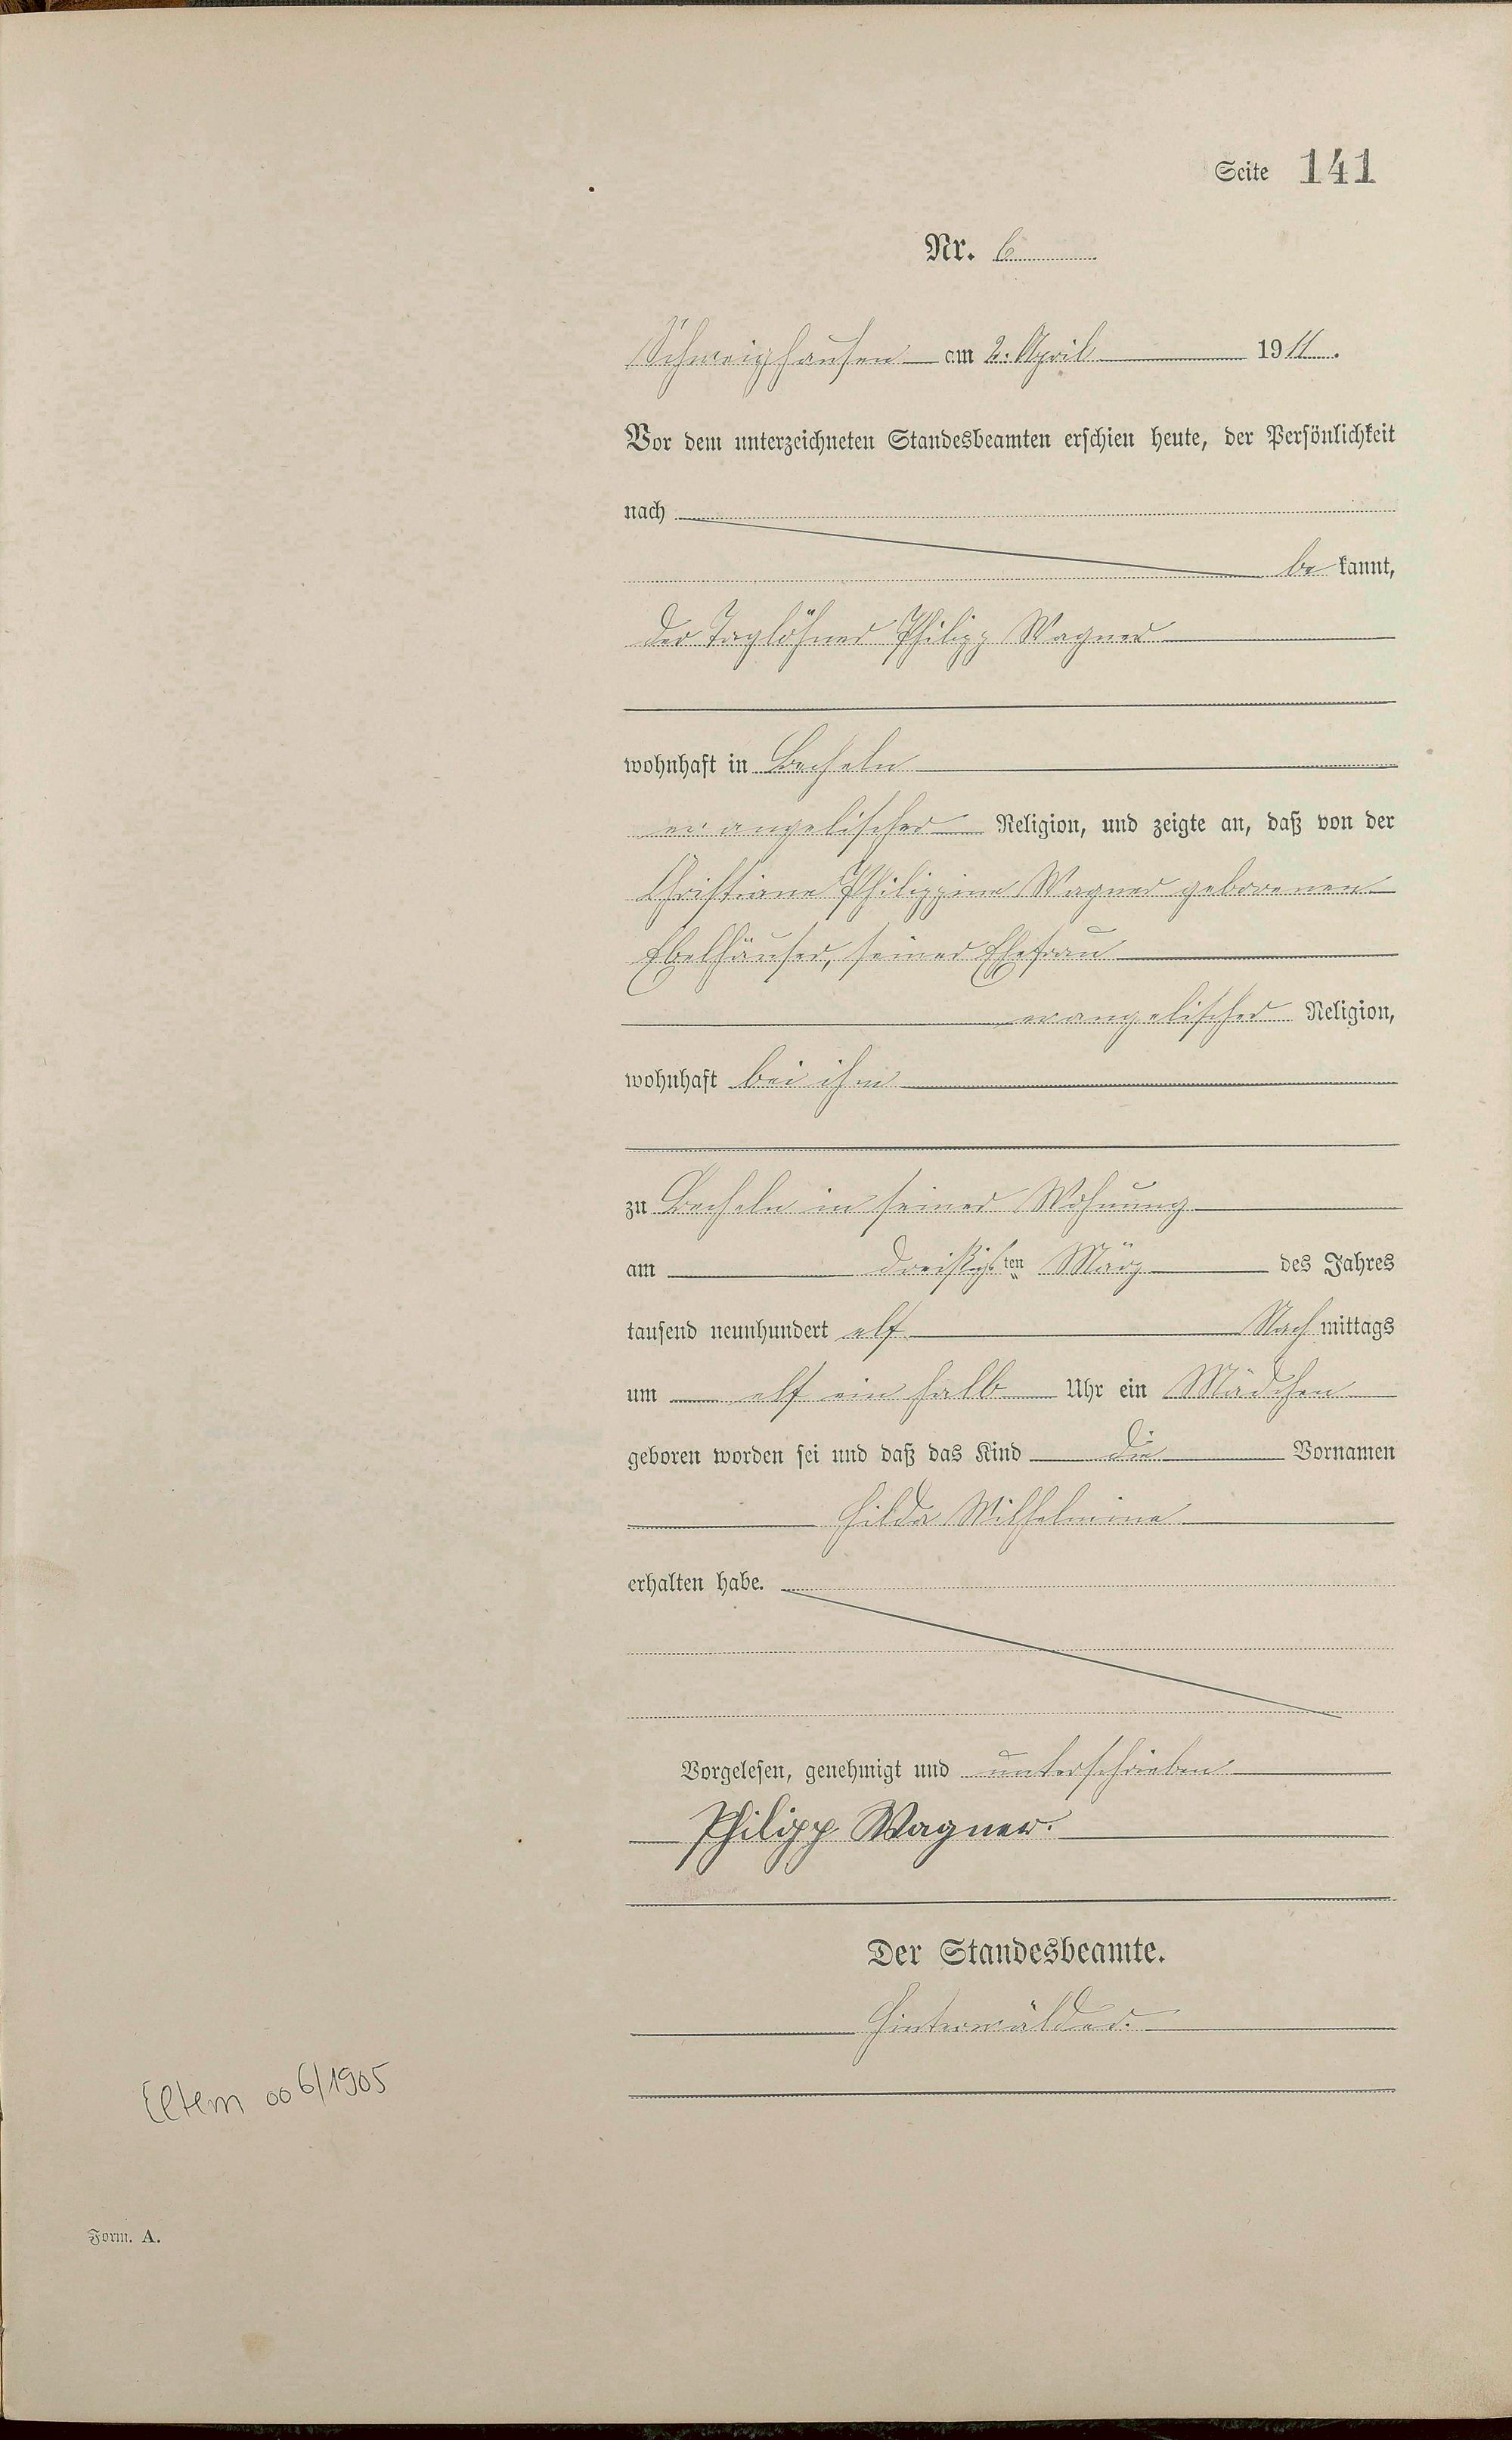 Seite 141
Nr. 6
Schweighausen am 2. April 1911.
Vor dem unterzeichneten Standesbeamten erschien heute, der Persönlichkeit
nach
be kannt,
der Taglöhner Philipp Wagner
wohnhaft in Becheln
evangelischer Religion, und zeigte an, daß von der
Christiane Philippine Wagner geborenen
Ebelhäuser, seiner Ehefrau
evangelischer Religion,
wohnhaft bei ihm
zu Becheln in seiner Wohnung
am dreißigsten März des Jahres
tausend neunhundert elf Nachmittags
um elf ein halb Uhr ein Mädchen
geboren worden sei und daß das Kind die Vornamen
Hilda Wilhelmine
erhalten habe.
Vorgelesen, genehmigt und unterschrieben
Philipp Wagner.
Der Standesbeamte.
Hinterwälder.
Eltern oo 6/1905
Form. A.